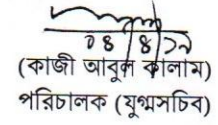 ০৪/৪/১৯
(কাজী আবুল কালাম)
পরিচালক (যুগ্মসচিব)